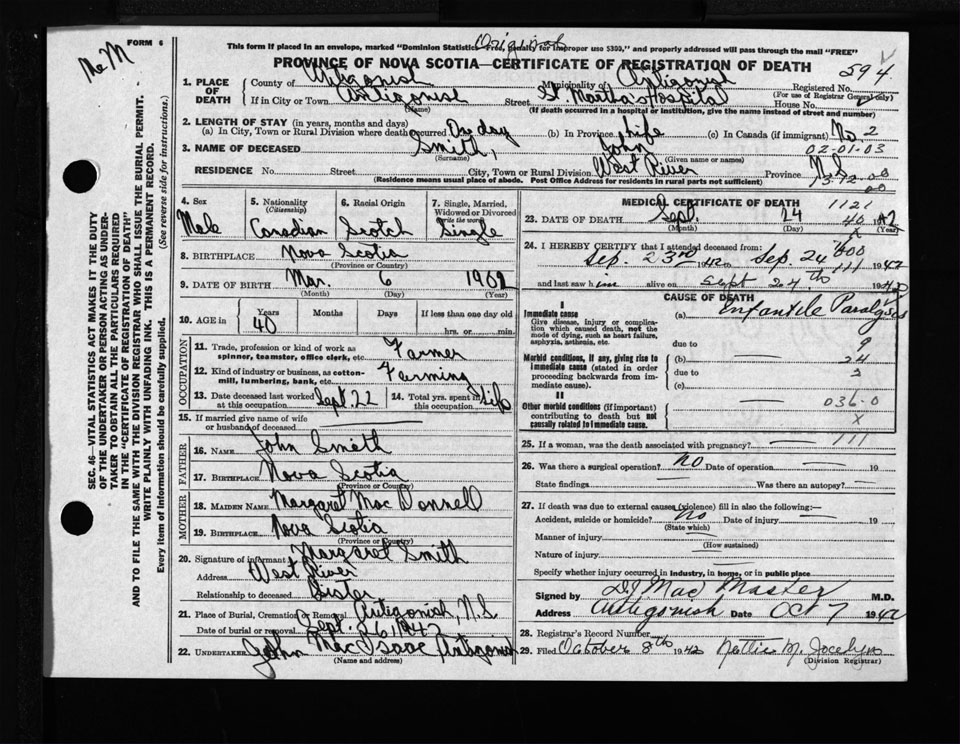 FORM 6
Mc M
Original
This form if placed in an envelope, marked "Dominion Statistics—Free, penalty for improper use $300," and properly addressed will pass through the mail "FREE"
PROVINCE OF NOVA SCOTIA—CERTIFICATE OF REGISTRATION OF DEATH
594
SEC. 46—VITAL STATISTICS ACT MAKES IT THE DUTY
OF THE UNDERTAKER OR PERSON ACTING AS UNDER-
TAKER TO OBTAIN ALL THE PARTICULARS REQUIRED
IN THE "CERTIFICATE OF REGISTRATION OF DEATH"
AND TO FILE THE SAME WITH THE DIVISION REGISTRAR WHO SHALL ISSUE THE BURIAL PERMIT.
WRITE PLAINLY WITH UNFADING INK. THIS IS A PERMANENT RECORD.
Every item of information should be carefully supplied. (See reverse side for instructions.)
1. PLACE OF DEATH County of Antigonish Municipality of Antigonish Registered No.
(For use of Registrar General only)
If in City or Town Antigonish Street St Martha's Hospital House No.
(Name) (If death occurred in a hospital or institution, give the name instead of street and number)
2. LENGTH OF STAY (in years, months and days)
(a) In City, Town or Rural Division where death occurred One day (b) In Province life (c) In Canada (if immigrant) No 2
3. NAME OF DECEASED Smith, John 02-01-03
(Surname) (Given name or names)
RESIDENCE No. Street City, Town or Rural Division West River Province N.S.
(Residence means usual place of abode. Post Office Address for residents in rural parts not sufficient) 13-72-00
00
4. Sex Male
5. Nationality (Citizenship) Canadian
6. Racial Origin Scotch
7. Single, Married, Widowed or Divorced (write the word) Single
8. BIRTHPLACE Nova Scotia
(Province or Country)
9. DATE OF BIRTH Mar. 6 1902
(Month) (Day) (Year)
10. AGE in Years 40 Months Days If less than one day old
hrs. or min.
OCCUPATION
11. Trade, profession or kind of work as spinner, teamster, office clerk, etc. Farmer
12. Kind of industry or business, as cotton-mill, lumbering, bank, etc. Farming
13. Date deceased last worked at this occupation Sept. 22
14. Total yrs. spent in this occupation life
15. If married give name of wife or husband of deceased
FATHER
16. NAME John Smith
17. BIRTHPLACE Nova Scotia
(Province or Country)
MOTHER
18. MAIDEN NAME Margaret Mac Donnell
19. BIRTHPLACE Nova Scotia
(Province or Country)
20. Signature of informant Margaret Smith
Address West River
Relationship to deceased Sister
21. Place of Burial, Cremation or Removal Antigonish, N.S.
Date of burial or removal Sept. 26, 1942
22. UNDERTAKER John MacIsaac Antigonish
(Name and address)
MEDICAL CERTIFICATE OF DEATH
1121
23. DATE OF DEATH Sept. 24 1942
(Month) (Day) (Year)
40
24. I HEREBY CERTIFY that I attended deceased from:
Sep. 23rd 1942 to Sep. 24th 1942
and last saw him alive on Sept 24th 1942
CAUSE OF DEATH
I
Immediate cause
Give disease, injury or complication which caused death, not the mode of dying, such as heart failure, asphyxia, asthenia, etc.
(a) Infantile Paralysis
due to 9
Morbid conditions, if any, giving rise to immediate cause (stated in order proceeding backwards from immediate cause).
(b) 24
due to 3
(c)
II
Other morbid conditions (if important) contributing to death but not causally related to immediate cause.
036-0
X
25. If a woman, was the death associated with pregnancy? 111
26. Was there a surgical operation? No Date of operation 19
State findings Was there an autopsy?
27. If death was due to external causes (violence) fill in also the following:—
Accident, suicide or homicide? No Date of injury 19
(State which)
Manner of injury
(How sustained)
Nature of injury
Specify whether injury occurred in industry, in home, or in public place
Signed by D.J. MacMaster M.D.
Address Antigonish Date Oct 7 1942
28. Registrar's Record Number
29. Filed October 8th 1942 Nettie M. Jocelyn
(Division Registrar)